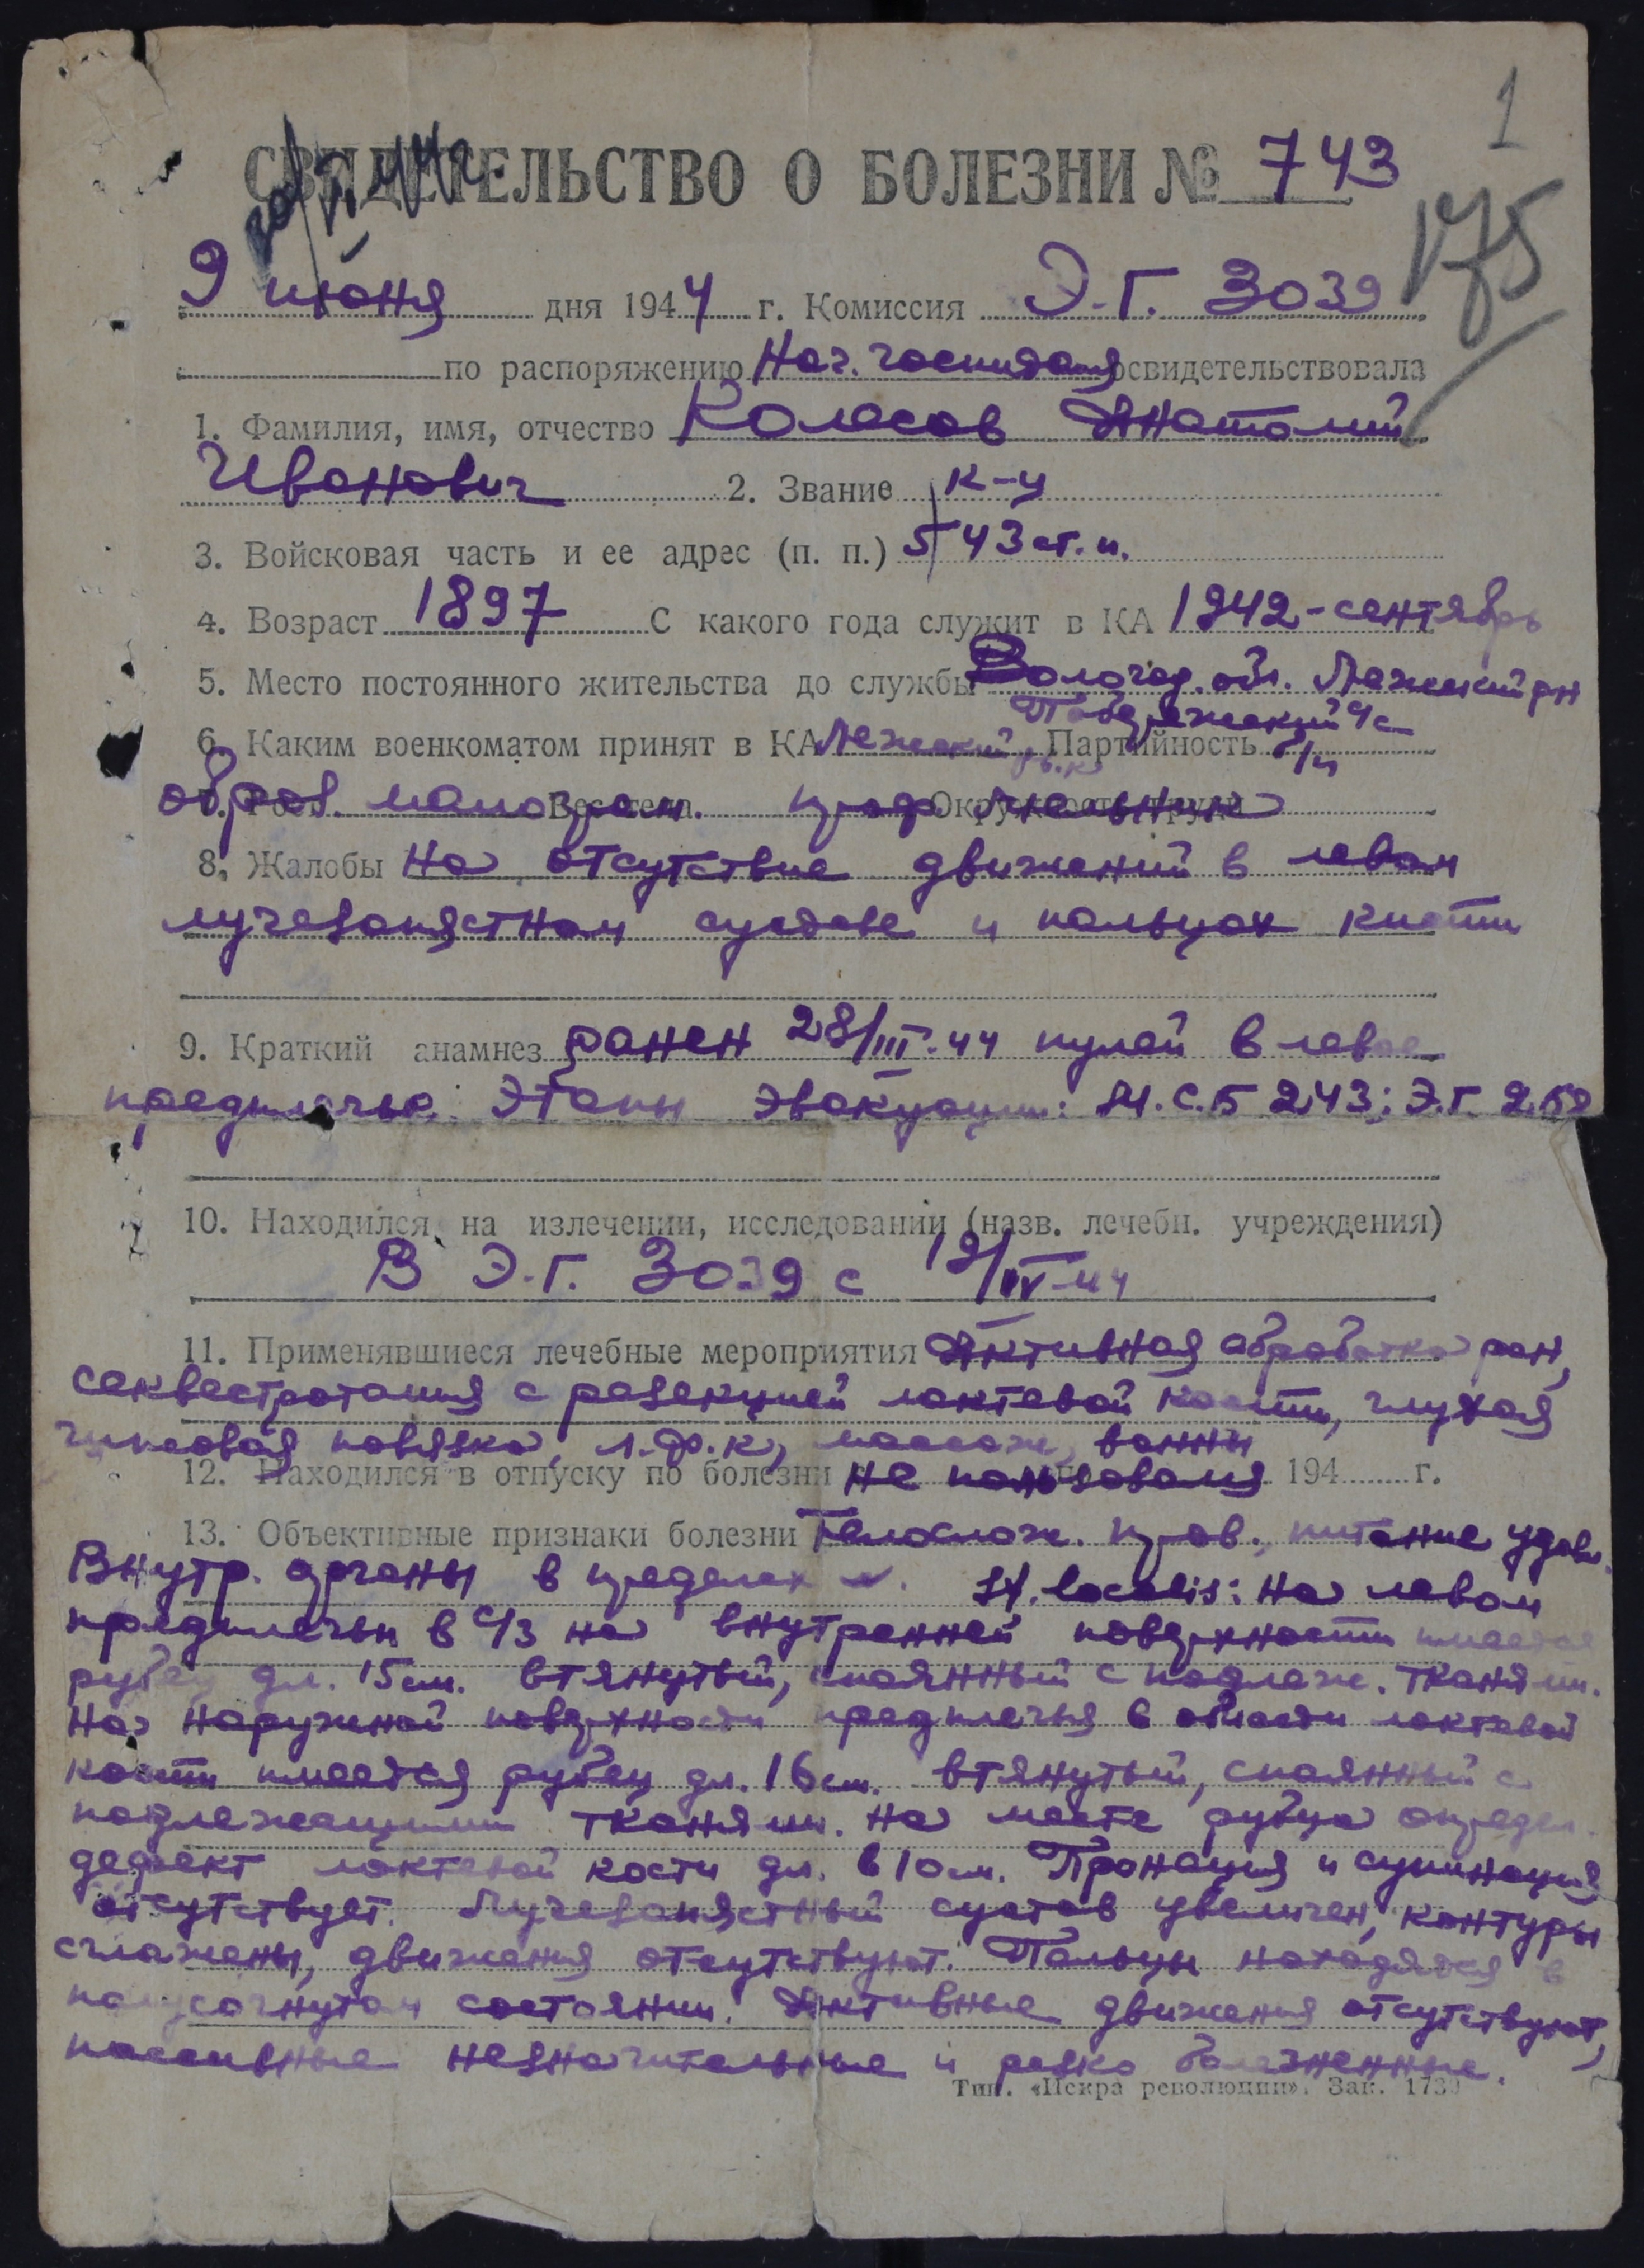 1
СВИДЕТЕЛЬСТВО О БОЛЕЗНИ № 743
175
9 июня дня 1944 г. Комиссия Э.Г. 3039
по распоряжению Нач. госпиталя освидетельствовала
1. Фамилия, имя, отчество Колесов Анатолий
Иванович 2. Звание к-ц
3. Войсковая часть и ее адрес (п. п.) 543 ст. п.
4. Возраст 1897 С какого года служит в КА 1942 - сентябрь
5. Место постоянного жительства до службы Вологод. обл. Лежский рн
6. Каким военкоматом принят в КА Лежский р.в.к. Партийность б/п
7. Рост Вес тела Окружность груди
образ. малограм. проф.
8. Жалобы На отсутствие движений в левом
лучезапястном суставе и пальцах кисти
9. Краткий анамнез ранен 28/III-44 пулей в левое
предплечье. Этапы эвакуации: М.С.Б 243; Э.Г.
10. Находился на излечении, исследовании (назв. лечебн. учреждения)
В Э.Г. 3039 с 19/IV-44
11. Применявшиеся лечебные мероприятия Активная обработка ран,
секвестротомия с резекцией локтевой кости, глухая
гипсовая повязка, л.ф.к, массаж, ванны
12. Находился в отпуску по болезни не пользовался 194 г.
13. Объективные признаки болезни Телослож. прав., питание удовл.
Внутр. органы в пределах N. St. localis: На левом
предплечьи в с/3 на внутренней поверхности имеется
рубец дл. 15 см. втянутый, спаянный с подлеж. тканями.
На наружной поверхности предплечья в области локтевой
кости имеется рубец дл. 16 см. втянутый, спаянный с
подлежащими тканями. На месте рубца определ.
дефект локтевой кости дл. в 10 см. Пронация и супинация
отсутствует. Лучезапястный сустав увеличен, контуры
сглажены, движения отсутствуют. Пальцы находятся в
полусогнутом состоянии. Активные движения отсутствуют,
пассивные незначительные и резко болезненные.
Тип. «Искра революции». Зак. 1739